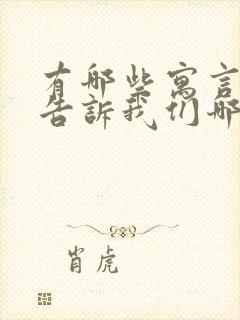 有哪些寓言
告訴我们哪
肖虎